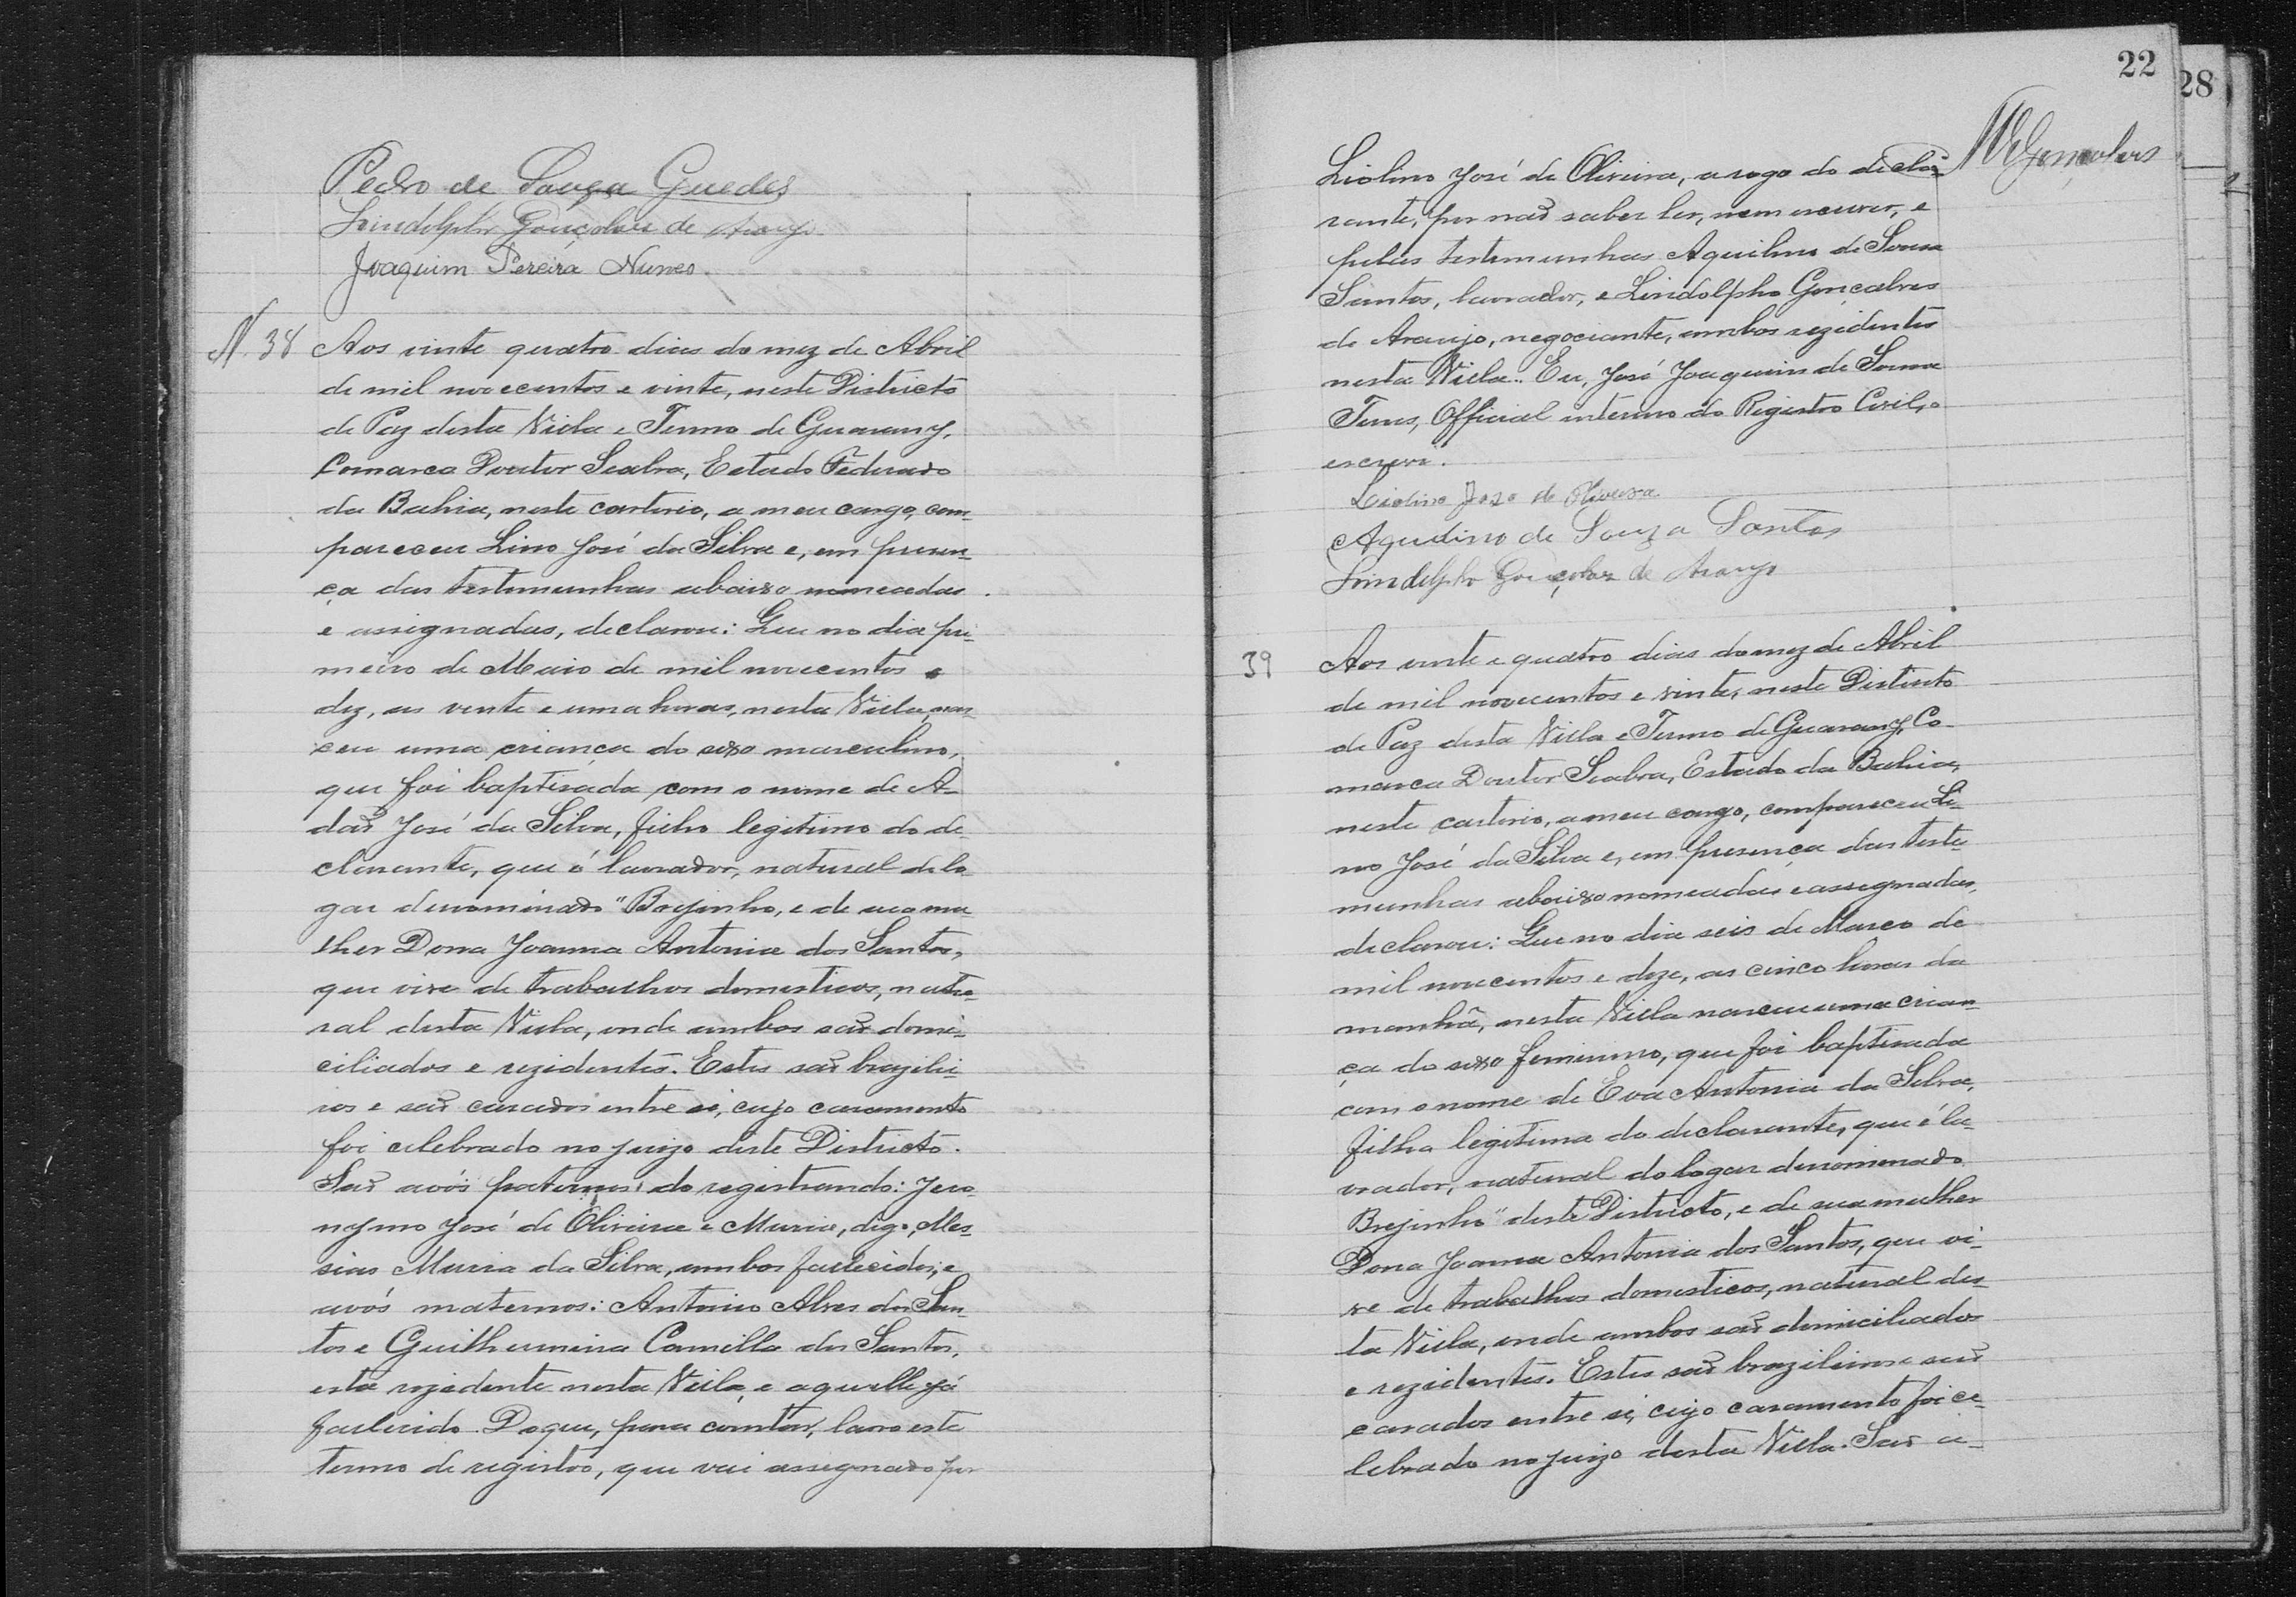 Pedro de Souza Guedes
Lindolpho Gonçalves de Araujo
Joaquim Pereira Nunes.
N. 38 Aos vinte quatro dias do mez de Abril
de mil novecentos e vinte, neste Districto
de Paz desta Villa e Termo de Guarany,
Comarca Doutor Seabra, Estado Federado
da Bahia, neste cartorio, a meu cargo, com-
pareceu Lino José da Silva e, em presen-
ça das testemunhas abaixo nomeadas
e assignadas, declarou: Que no dia pri-
meiro de Maio de mil novecentos e
dez, as vinte e uma horas, nesta Villa, nas-
ceu uma criança do sexo masculino,
que foi baptisada com o nome de A-
dão José da Silva, filho legitimo do de-
clarante, que é lavrador, natural do lo-
gar denominado "Brejinho, e de sua mu-
lher Dona Joanna Antonia dos Santos,
que vive de trabalhos domesticos, natu-
ral desta Villa, onde ambos são domi-
ciliados e rezidentes. Estes são brazilei-
ros e são casados entre si, cujo casamento
foi celebrado no juizo deste Districto.
São avós paternos do registrando: Jero-
nymo José de Oliveira e Maria, digo, Mes-
sias Maria da Silva, ambos fallecidos, e
avós maternos: Antonio Alves dos San-
tos e Guilhermina Camilla dos Santos,
esta rezidente nesta Villa, e aquelle já
fallecido. Do que, para constar, lavro este
termo de registro, que vai assignado por
22
28
Liolino José de Oliveira, a rogo do decla-
rante, por não saber ler, nem escrever, e
pelas testemunhas Aquilino de Sousa
Santos, lavrador, e Lindolpho Gonçalves
de Araujo, negociante, ambos rezidentes
nesta Villa. Eu, José Joaquim de Sousa
Official interino do Registro Civil, o
escrevi.
Liolino Joze de Oliveira
Aquilino de Souza Santos
Lindolpho Gonçalves de Araujo
39 Aos vinte e quatro dias do mez de Abril
de mil novecentos e vinte, neste Districto
de Paz desta Villa e Termo de Guarany, Co-
marca Doutor Seabra, Estado da Bahia,
neste cartorio, a meu cargo, compareceu Li-
no José da Silva e, em presença das teste-
munhas abaixo nomeadas e assignadas,
declarou: Que no dia seis de Março de
mil novecentos e doze, as cinco horas da
manhã, nesta Villa nasceu uma crian-
ça do sexo feminino, que foi baptisada
com o nome de Eva Antonia da Silva,
filha legitima do declarante, que é la-
vrador, natural do logar denominado
Brejinho" deste Districto, e de sua mulher
Dona Joanna Antonia dos Santos, que vi-
ve de trabalhos domesticos, natural des-
ta Villa, onde ambos são domiciliados
e rezidentes. Estes são brazileiros e são
casados entre si, cujo casamento foi ce-
lebrado no juizo desta Villa. São a-